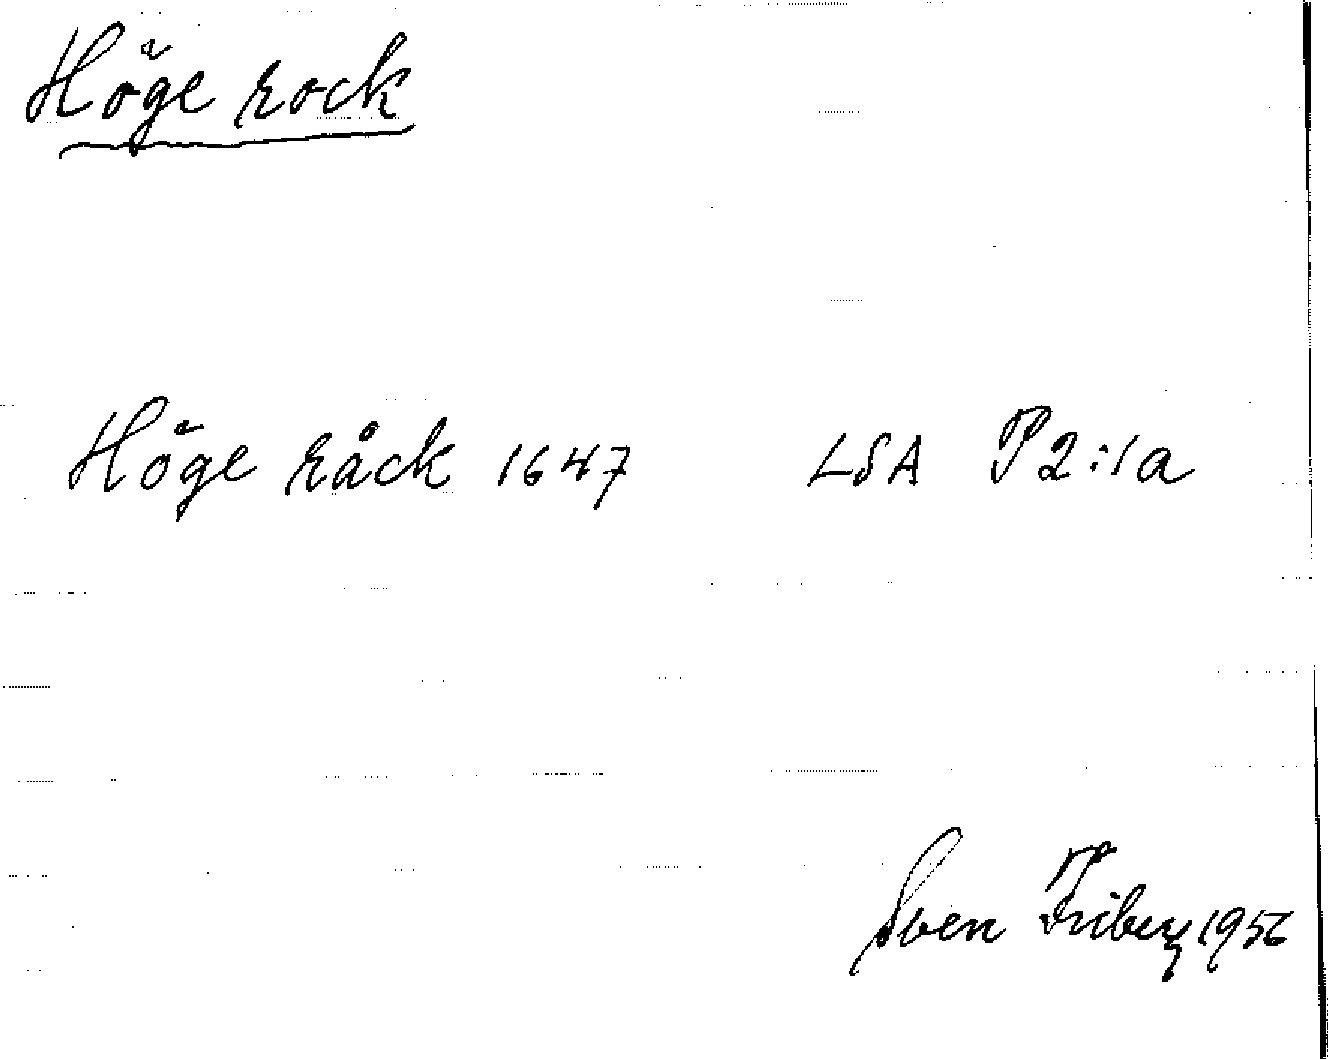 Höge rock
Höge råck 1647 LSA P2:1a
Sven Friberg 1956